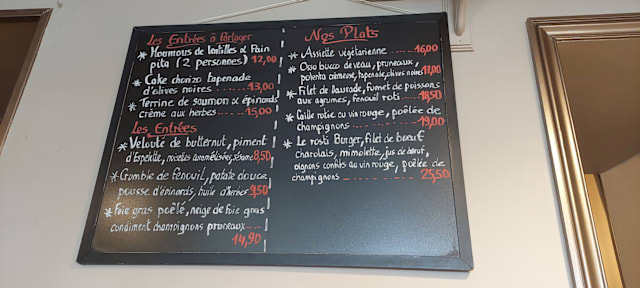 Les Entrées à Partager
* Houmous de lentilles & Pain
pita (2 personnes) 12,00
* Cake chorizo tapenade
d'olives noires ---- 13,00
* Terrine de saumon & épinards
crème aux herbes ---- 15,00
Les Entrées
* Velouté de butternut, piment
d'Espelette, noisettes caramélisées, 8,50
* Crumble de fenouil, patate douce
pousse d'épinards, huile d'herbes 9,50
* Foie gras poêlé, neige de foie gras
condiment champignons pruneaux ---
14,90
Nos Plats
* Assiette végétarienne ------ 16,00
* Osso bucco de veau, pruneaux,
polenta crémeuse, tapenade, olives noires 17,00
* Filet de daurade, fumet de poissons
aux agrumes, fenouil roti ---- 18,50
* Caille rotie au vin rouge, poêlée de
champignons ------ 19,00
* Le rosti Burger, filet de boeuf
charolais, mimolette, jus de boeuf,
oignons confits au vin rouge, poêlée de
champignons ------ 25,50